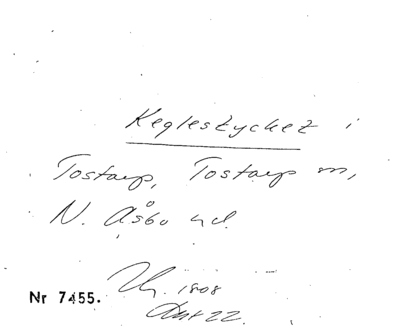 Keglestycket i
Tostarp, Tostarp m,
N. Åsbo hd.
1808
Nr 7455.
22.